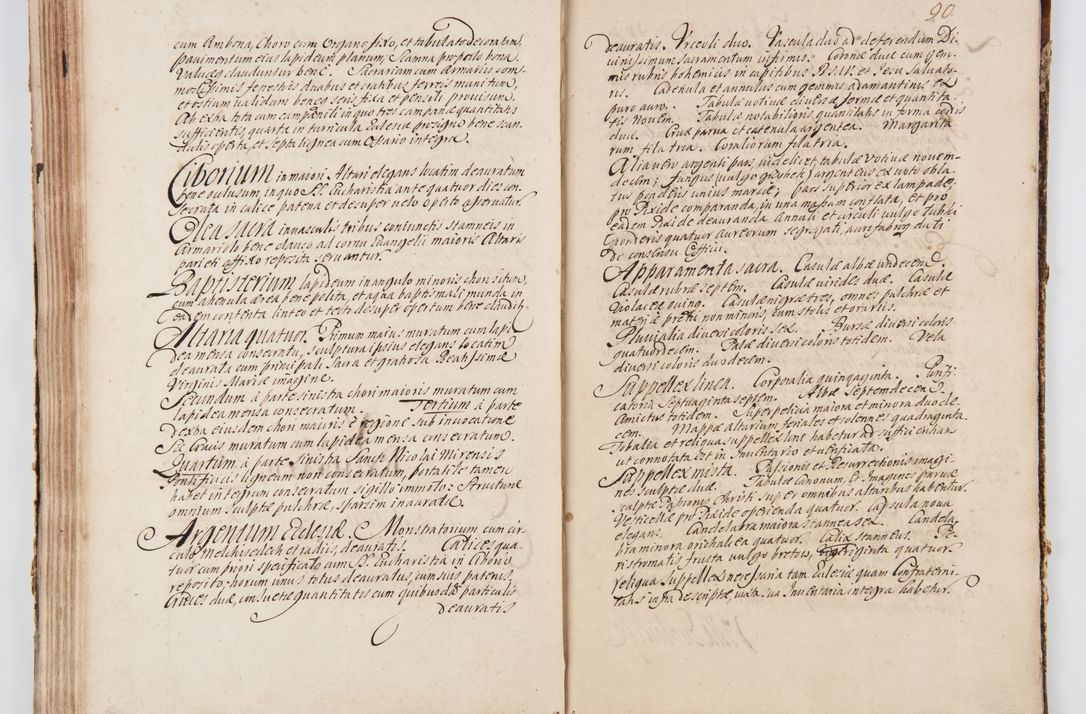 cum Ambona, Choro cum Organo fixo, et tabulato decoratum,
pavimentum eius lapideum planum, Scamna pro populo bona.
Valvæ clauduntur bene. Sacrarium cum Armariis com-
modissimis fenestris duabus et cratibus ferreis munitum,
et ostium validum bene seris fixa et pensili provisum.
Ab extra tota cum campanili in quo tres campanæ quantitatis
sufficientis, quarta in turricula Ecclesiæ pro signo bene scan-
dulis operta, et septa lignea cum Ossario integra.
Ciborium in maiori Altari elegans locatim deauratum
bene occlusum, in quo SS. Eucharistia ante quatuor dies con-
secrata in calice patena et desuper velo operto asservatur.
Olea sacra in vasculis tribus coniunctis stanneis in
Armariolo bene clauso ad cornu Evangelii maioris Altaris
parieti affixo reposita servantur.
Baptisterium lapideum in angulo minoris chori situm,
cum ahenula ærea bene polita, et aqua baptismali munda in
ea dem contenta linteo et tecto desuper opertum bene clauditur.
Altaria quatuor. Primum maius muratum cum lapi-
dea mensa consecrata, sculptura ipsius elegans locatim
deaurata cum principali Sacra et gratiosa Beatissimæ
Virginis Mariæ imagine.
Secundum à parte sinistra chori maioris muratum cum
lapidea mensa consecratum. Tertium à parte
dextra eiusdem chori maioris è regione sub invocatione
S. Crucis muratum cum lapidea mensa consecratum.
Quartum à parte sinistra Sancti Nicolai Mirensis
Pontificis ligneum non consecratum, portatile tamen
habet integrum consecratum sigillo immoto. Structuræ
omnium sculptæ pulchræ, sparsim inauratæ.
Argentum Ecclesiæ. Monstratorium cum cir-
culo Melchisedech et radiis, deauratis. Calices qua-
tuor cum priori specificato cum SS. Eucharistia in Ciborio
reperito, horum unus totus deauratus, cum suis patenis,
Cruces duæ, consuetæ quantitatis cum quibusdam particulis
deauratis
90.
deauratis. Urceoli duo. Vascula duo ad deferendum Di-
vinissimum Sacramentum infirmis. Coronæ duæ cum gem-
mis rubris bohemicis in capitibus B.V.M. et Jesu Salvato-
ris. Catenula et annulus cum gemmis adamantinis ex
puro auro. Tabulæ votivæ diversæ formæ et quantita-
tis novem. Tabulæ notabilioris quantitatis in forma cordis
duæ. Crux parva et catenula argentea. Margarita-
rum fila tria. Coraliorum fila tria.
Alia vero argenti pars videlicet tabulæ votivæ novem-
decem; fungus (vulgo grzybek) argenteus ex voto obla-
tus ponderis unius marcæ; pars superior ex lampade
pro Pixide comparanda, in una massam conflata, et pro
eadem Pixide deauranda annuli et circuli vulgo
ponderis quatuor aureorum segregati, aurifabro dati
de consensu Officii.
Apparamenta sacra. Casulæ albæ undecem.
Casulæ rubræ septem. Casulæ virides duæ. Casulæ
violaceæ quinq. Casulæ nigræ tres, omnes pulchræ et
materiæ pretii non minoris, cum stolis et orariis.
Pluvialia diversi coloris sex. Bursæ diversi coloris
quatuordecem. Palæ diversi coloris totidem. Vela
diversi coloris duodecem.
Suppellex linea. Corporalia quinquaginta. Puri-
catoria septuaginta septem. Albæ septemdecem.
Amictus totidem. Superpelicia maiora et minora duode-
cem. Mappæ altarium feriales et solennes quadraginta.
Tobalia et reliqua suppellex lini habetur ad sufficientiam
ut connotata est in Inventario et verificata.
Suppellex mixta. Passionis et Resurrectionis imagi-
nes sculptæ duæ. Tabulæ canonum, et Imagines parvæ
sculptæ Passionis Christi super omnibus altaribus habentur.
Vesticellæ pro Pixide operienda quatuor. Capsula nova
elegans. Candelabra maiora stannea sex. Candela-
bra minora orichalcea quatuor. Calix stanneus. Pe-
ristromatis frusta vulgo bretow, quatuor.
reliqua Suppellex necessaria tam Ecclesiæ quam Confraterni-
tatis infra descriptæ, iuxta sua Inventaria integra habetur.